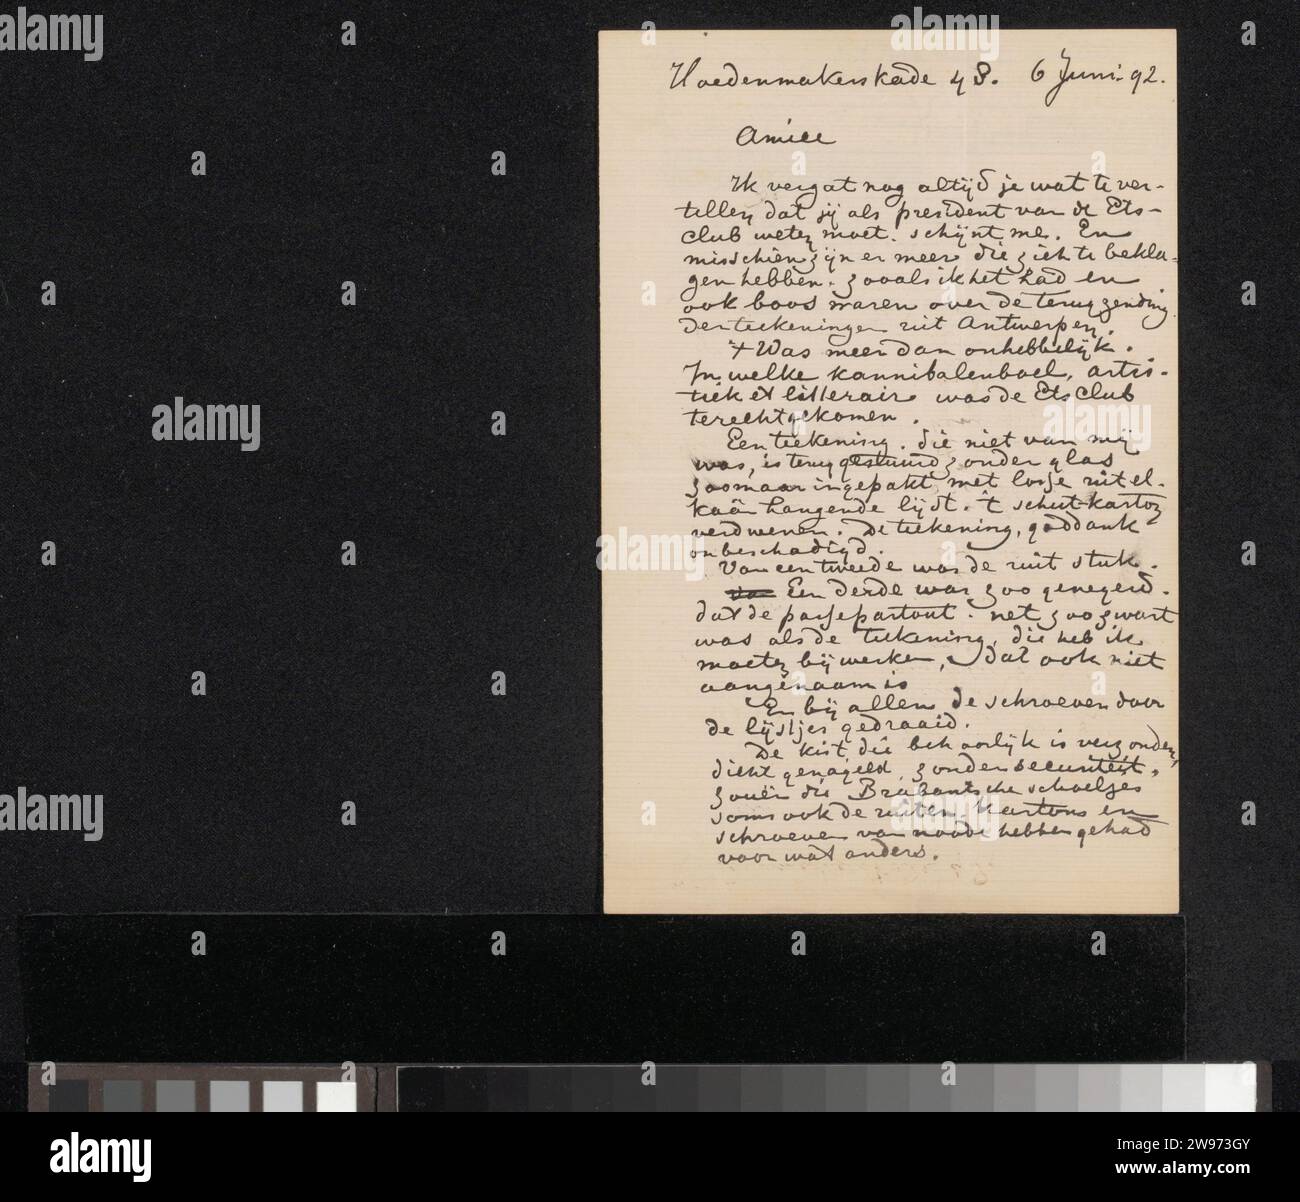 Hoedenmakerskade 43. 6 Juni. 92.
Amice
Ik vergat nog altijd je wat te ver-
tellen dat jij als president van de Ets-
club weten moet. schijnt me. En
misschien zijn er meer die zich te bekla-
gen hebben. zooals ik het had en
ook boos waren over de terugzending
der teekeningen uit Antwerpen.
't Was meer dan onhebbelijk.
In welke kannibalenboel, artis-
tiek et litterair was de Etsclub
terechtgekomen.
Een teekening. die niet van mij
was, is teruggestuurd zonder glas
zoomaar ingepakt met losse uit el-
kaâr hangende lijst. 't schutkarton
verdwenen. De teekening, goddank
onbeschadigd.
Van een tweede was de ruit stuk.
Een derde was zoo genegerd.
dat de passepartout. net zoo zwart
was als de teekening, die heb ik
moeten bijwerken, dat ook niet
aangenaam is
En bij allen de schroeven door
de lijstjes gedraaid.
De kist, die behoorlijk is verzonden,
dicht genageld, zonder securiteit.
zouën die Brabantsche schoeljes
soms ook de ruiten. kartons en
schroeven van noode hebben gehad
voor wat anders.
alamy
Image ID: 2W973GY
www.alamy.com